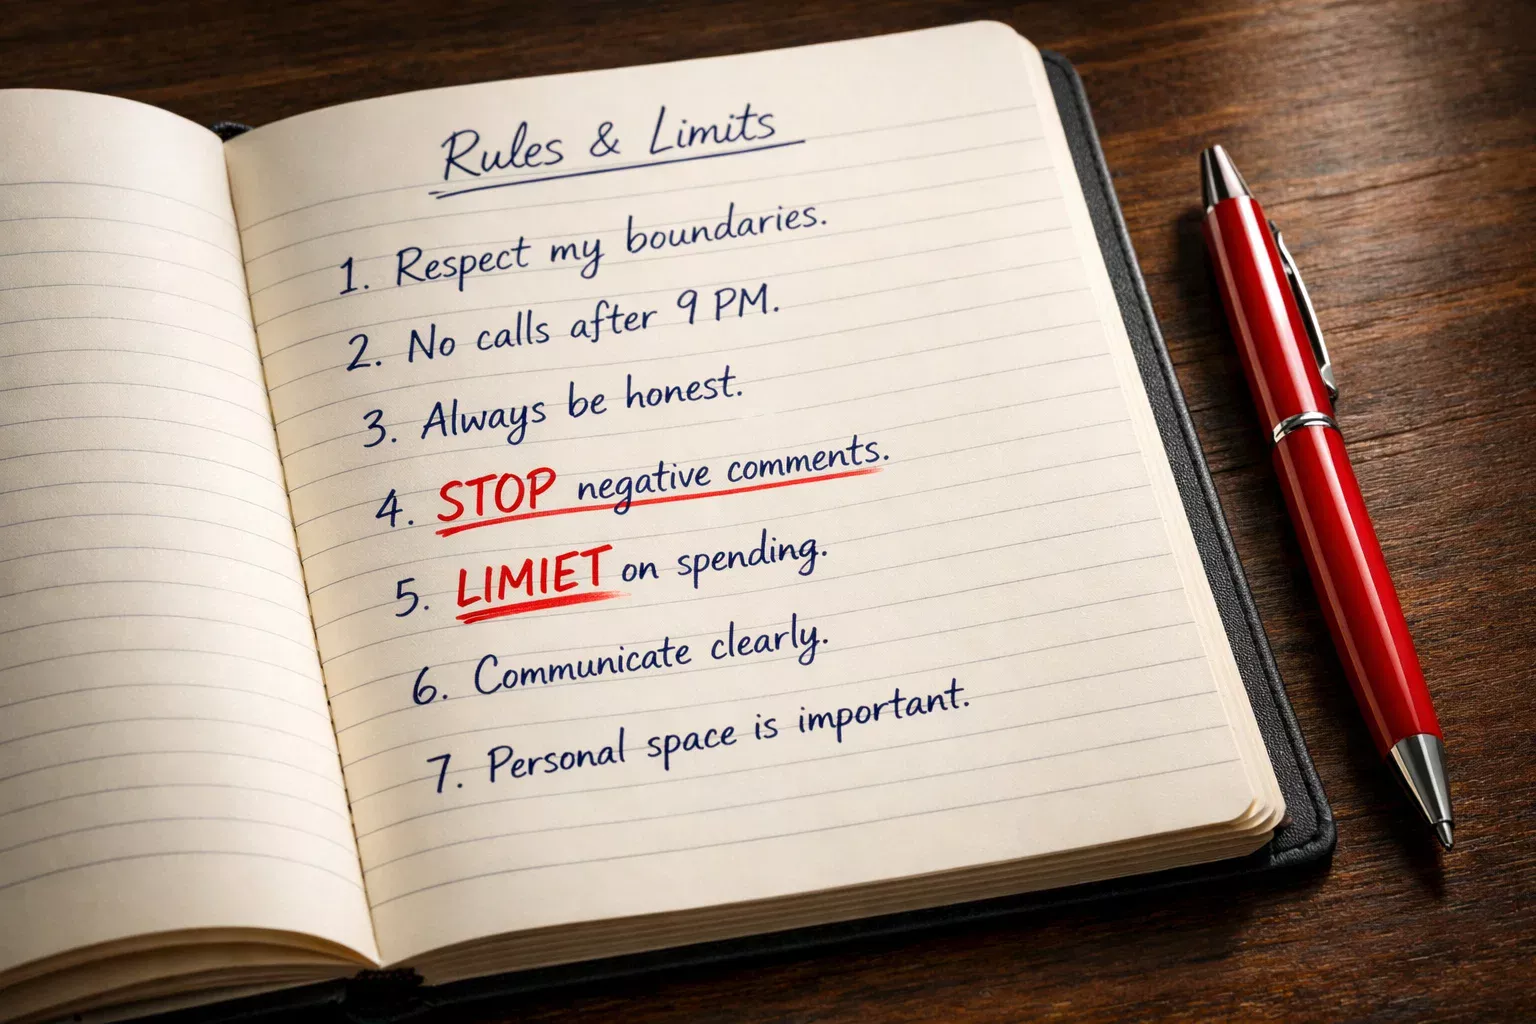 Rules & Limits
1. Respect my boundaries.
2. No calls after 9 PM.
3. Always be honest.
4. STOP negative comments.
5. LIMIET on spending.
6. Communicate clearly.
7. Personal space is important.